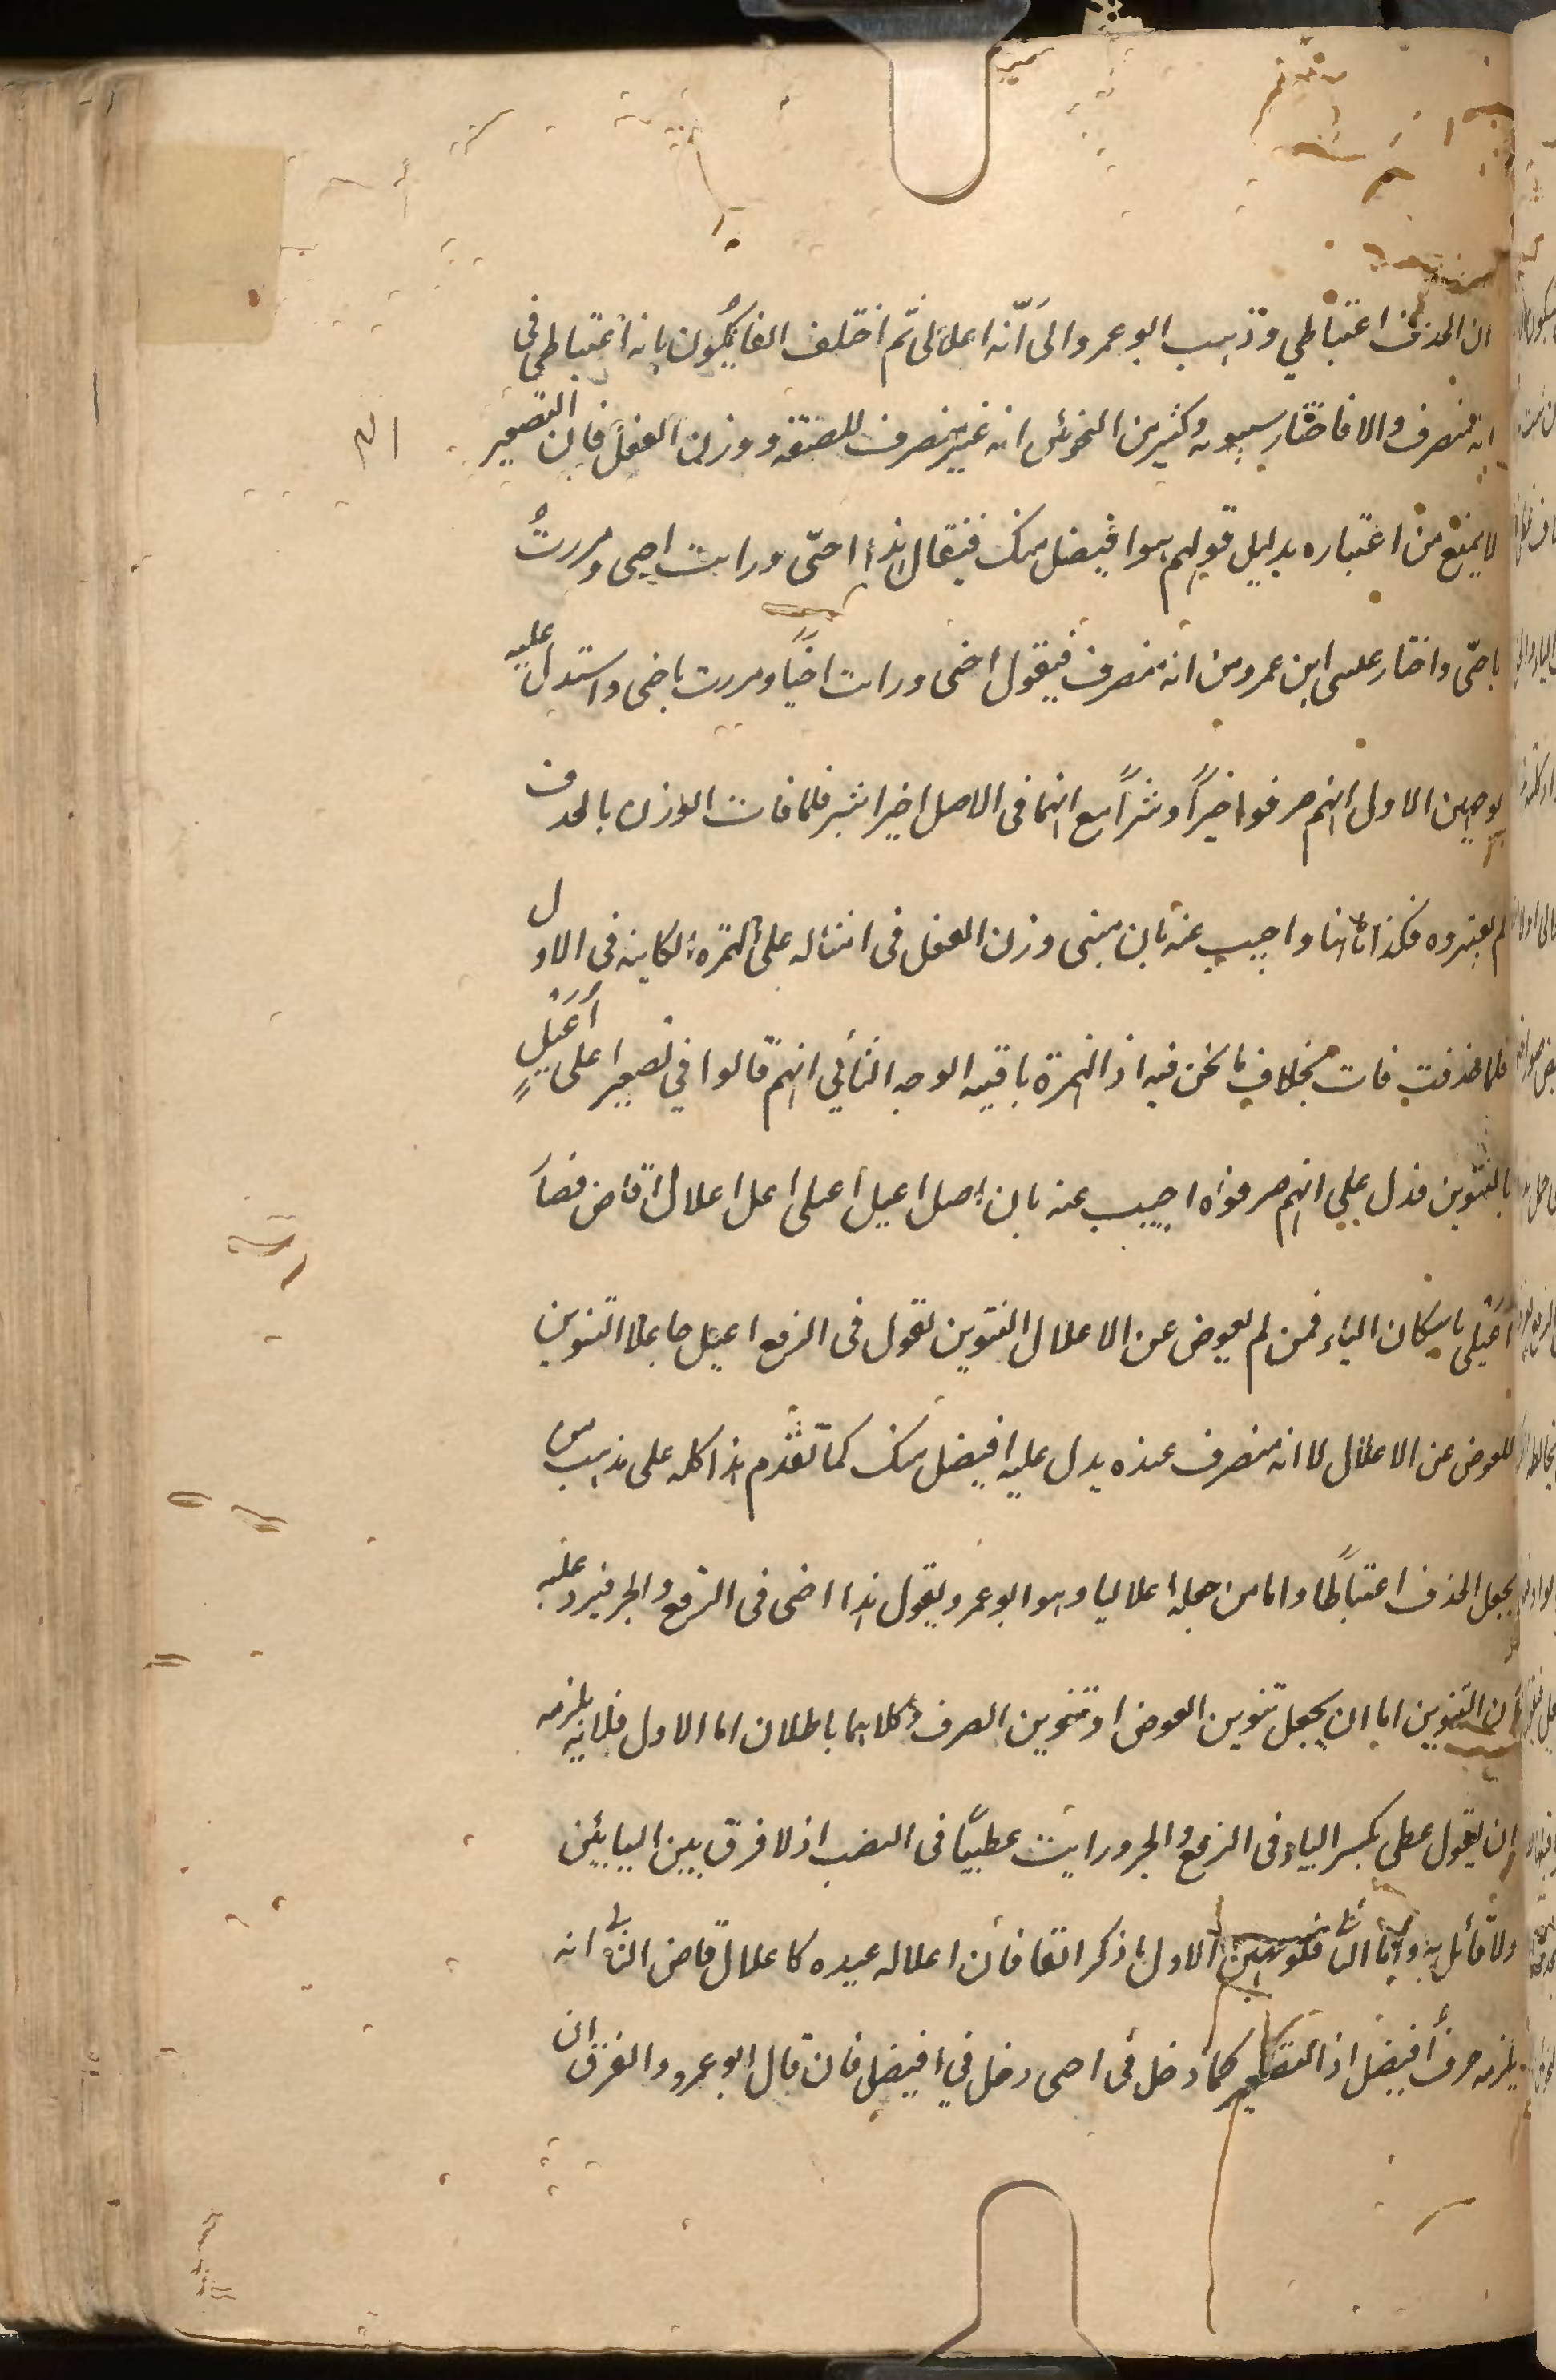 ان الحذف اعتباطي وذهب ابو عمرو الى أنّه اعلالى ثم اختلف القائلون بانه اعتباطي فى
انه منصرف والا فاختار سيبويه وكثير من النحوئين انه غير منصرف للصفة ووزن الفعل فان التصغير
لا يمنع من اعتباره بدليل قولهم هو افيضل منك فيقال هذا احىّ ورايت احى ومررتُ
باحىّ واختار عيسى ابن عمرو من انه منصرف فيقول احى ورايت احيًا ومررت باحى واستدل عليه
بوجهين الاول انهم صرفوا خيرًا وشرًا مع انهما فى الاصل اخير اشر فلما فات الوزن بالحذف
لم يعتبروه فكذا هاهنا واجيب عنه بان مبنى وزن الفعل فى امثاله على الهمزة الكاينه فى الاول
فلما حذفت فات بخلاف ما نحن فيه اذ الهمزة باقيه الوجه الثاني انهم قالوا في تصغير اعلى أُعَيْلٍ
بالتنوين فدل على انهم صرفوه اجيب عنه بان اصل اعيل اعيلى اعل اعلال قاض فصار
اعيلى باسكان الياء فمن لم يعوض عن الاعلال التنوين تقول فى الرفع اعيل جاعلا التنوين
للعوض عن الاعلال لا انه منصرف عنده يدل عليه افيضل منك كما تقدم هذا كله على مذهب من
يجعل الحذف اعتباطًا واما من جعله اعلاليا وهو ابو عمرو يقول هذا احى فى الرفع والجر فيرد عليه
ان التنوين اما ان يجعل تنوين العوض او تنوين الصرف وكلاهما باطلان اما الاول فلانه يلزمه
ان يقول عطى بكسر الياء فى الرفع والجر ورايت عطييًا فى النصب اذ لا فرق بين اليايئين
ولا قائل به واما الاول ما ذكر اتفا فان اعلاله عيده كاعلال قاض الثانى انه
يلزمه صرف أفيضل اذ التصغير كما دخل فى احى دخل في افيضل فان قال ابو عمرو والفرق ان